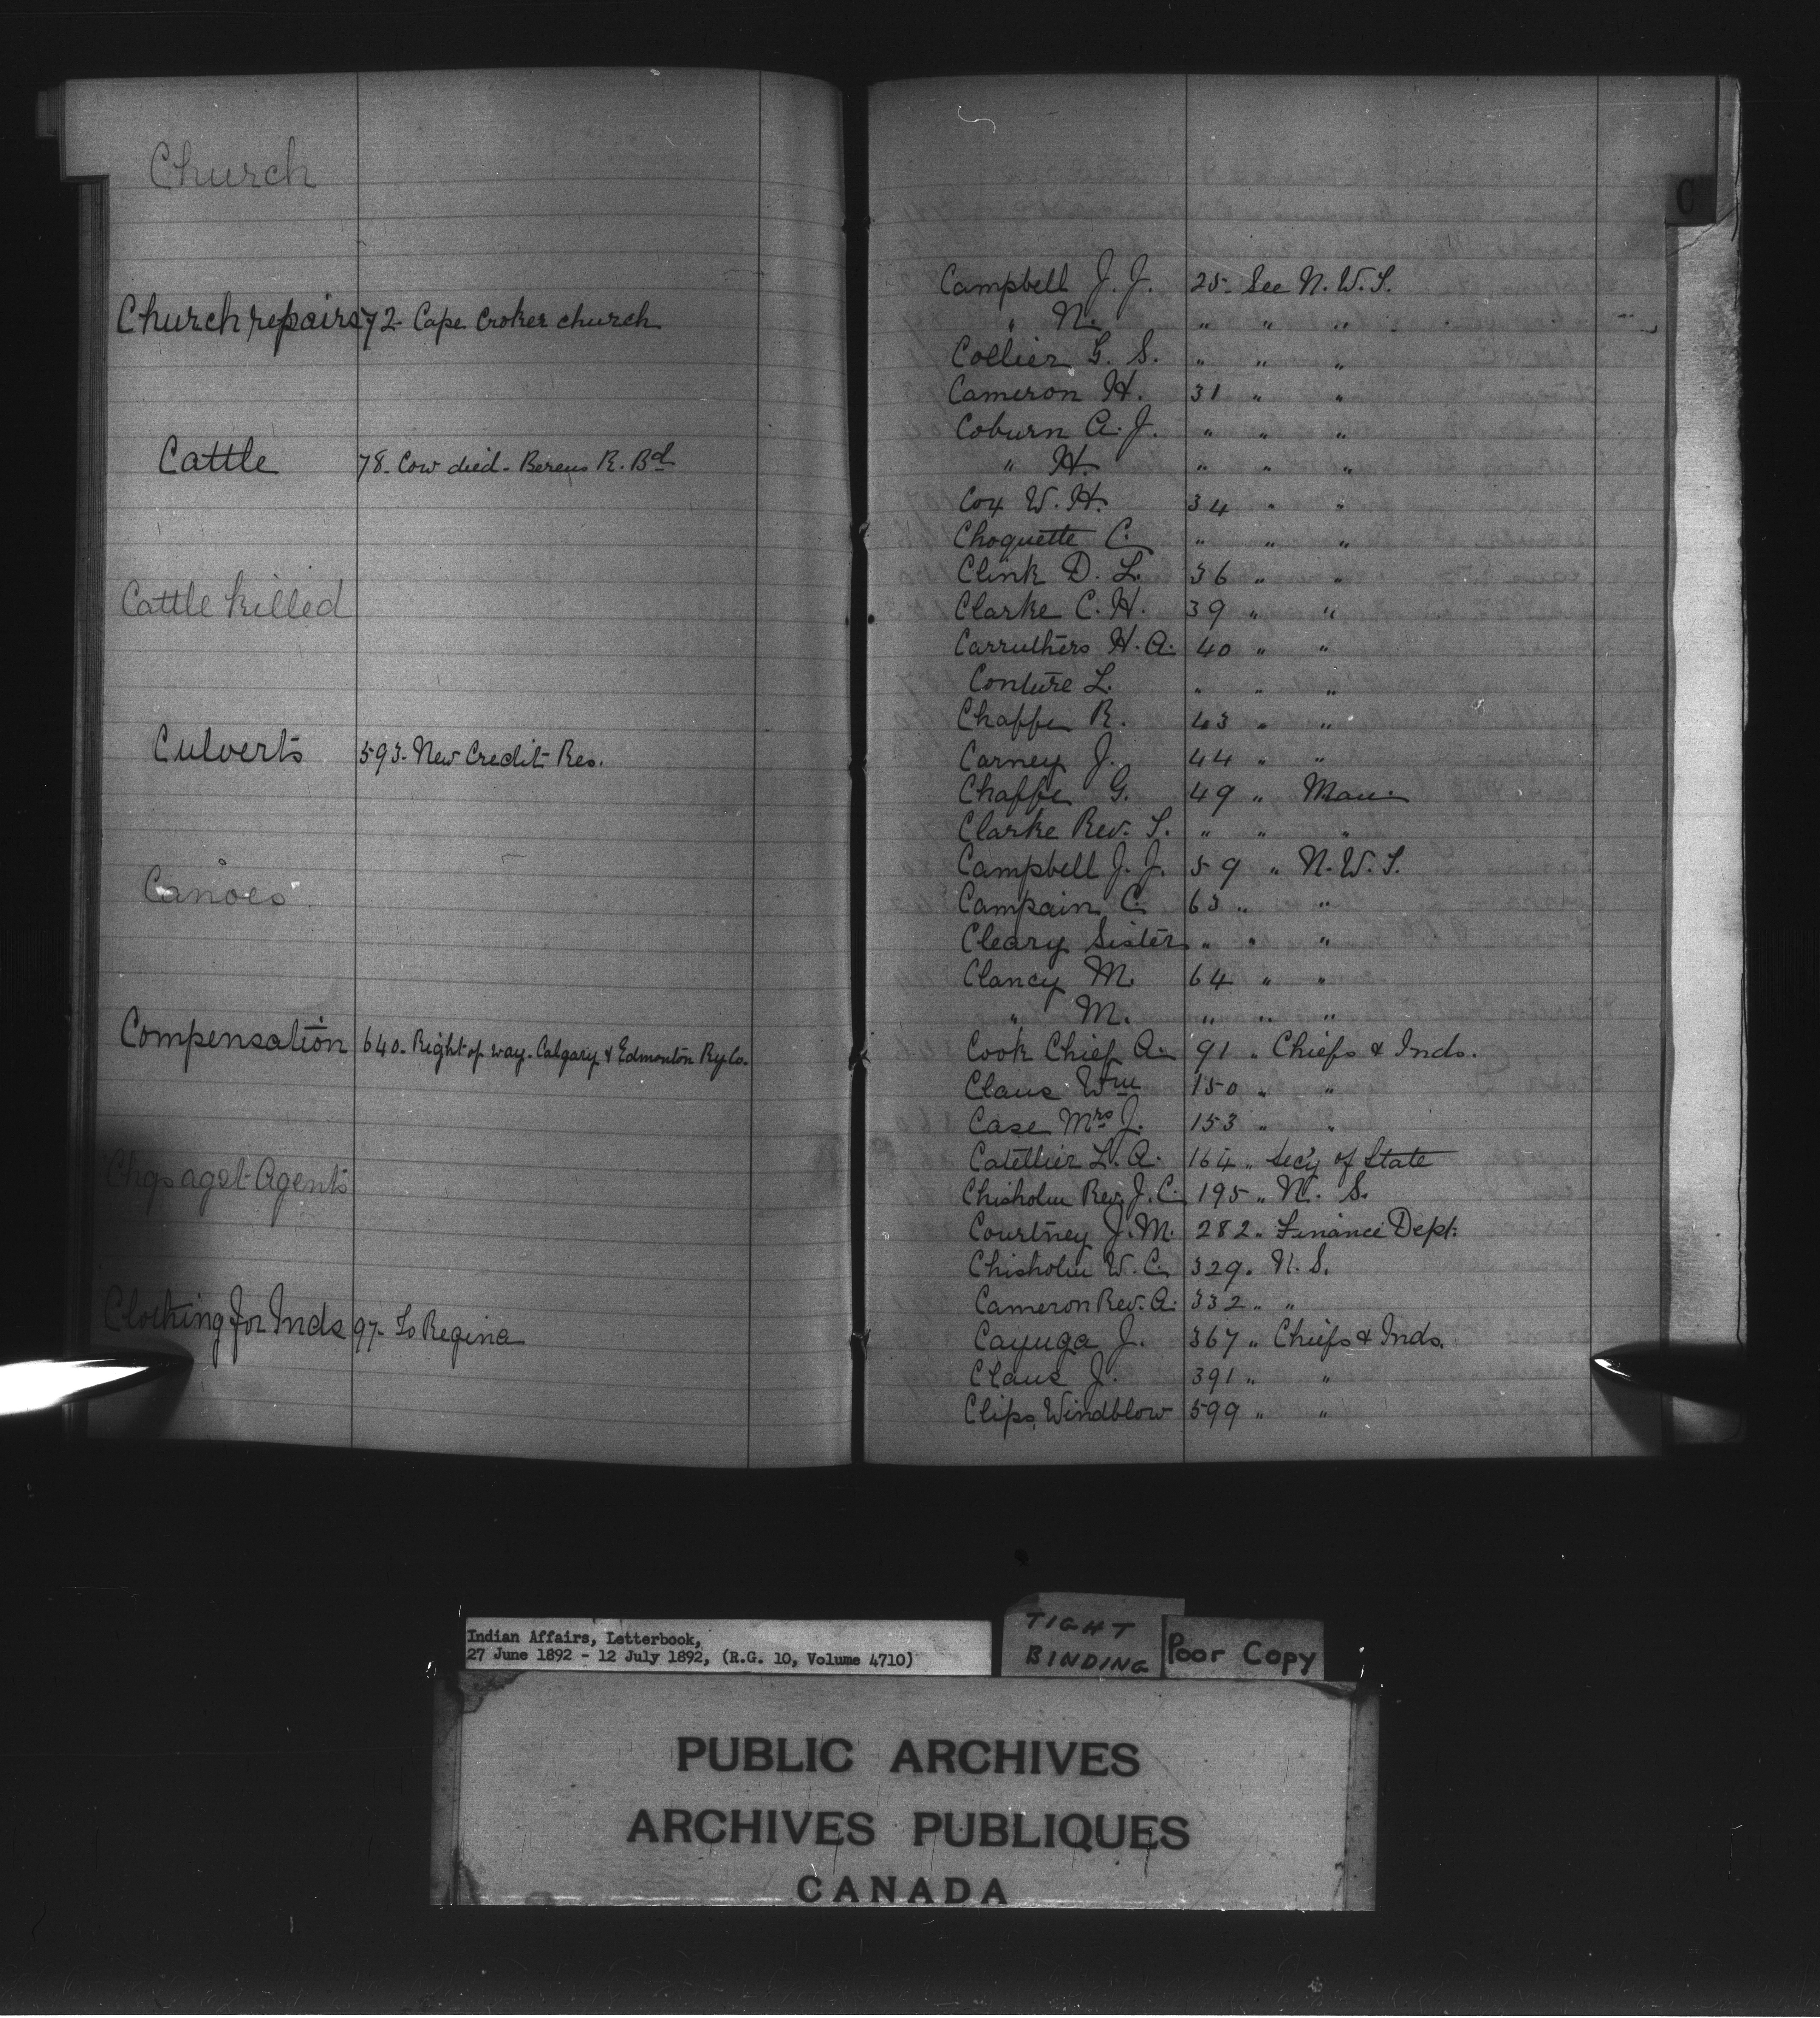 Church
Church repairs 72- Cape Croker church
Cattle 78- Cow died- Berens R. Bd
Cattle killed
Culverts 593- New Credit Res.
Canoes
Compensation 640- Right of way- Calgary & Edmonton Ry. Co.
Chgs agst Agents
Clothing for Inds 97- To Regina
C
Campbell J. J. 25- See N. W. T.
" N. " " "
Collier G. S. " " "
Cameron H. 31 " "
Coburn A. J. " " "
" H. " " "
Cox W. H. 34 " "
Choquette C. " " "
Clink D. L. 36 " "
Clarke C. H. 39 " "
Carruthers H. A. 40 " "
Couture L. " " "
Chaffe R. 43 " "
Carney J. 44 " "
Chaffe G. 49 " Man.
Clarke Rev. S. " " "
Campbell J. J. 59 " N. W. T.
Campain C. 63 " "
Cleary Sister " " "
Clancy M. 64 " "
" M. " " "
Cook Chief A. 91 " Chiefs & Inds.
Claus Wm 150 " "
Case Mrs J. 153 " "
Catellier L. A. 164 " Sec'y of State
Chisholm Rev. J. C. 195 " N. S.
Courtney J. M. 282 " Finance Dept.
Chisholm W. C. 329 " N. S.
Cameron Rev. A. 332 " "
Cayuga J. 367 " Chiefs & Inds.
Claus J. 391 " "
Clips, Windblow 599 " "
Indian Affairs, Letterbook,
27 June 1892 - 12 July 1892, (R.G. 10, Volume 4710)
TIGHT
BINDING
Poor Copy
PUBLIC ARCHIVES
ARCHIVES PUBLIQUES
CANADA